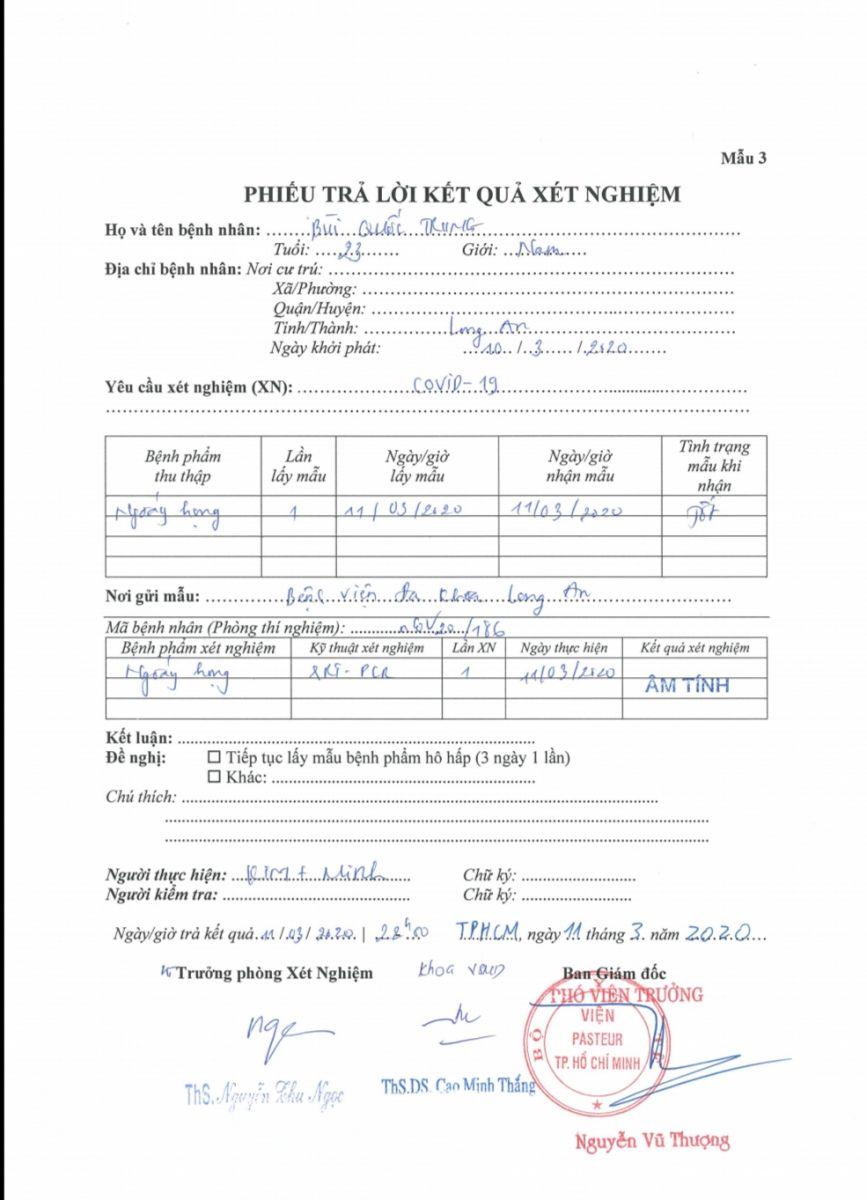 Mẫu 3
PHIẾU TRẢ LỜI KẾT QUẢ XÉT NGHIỆM
Họ và tên bệnh nhân: BÙI QUỐC TRUNG
Tuổi: 23 Giới: Nam
Địa chỉ bệnh nhân: Nơi cư trú:
Xã/Phường:
Quận/Huyện:
Tỉnh/Thành: Long An
Ngày khởi phát: 10 / 3 / 2020
Yêu cầu xét nghiệm (XN): COVID-19
Bệnh phẩm thu thập Lần lấy mẫu Ngày/giờ lấy mẫu Ngày/giờ nhận mẫu Tình trạng mẫu khi nhận
Ngoáy họng 1 11/03/2020 11/03/2020 Tốt
Nơi gửi mẫu: Bệnh viện Đa khoa Long An
Mã bệnh nhân (Phòng thí nghiệm): nCoV20/186
Bệnh phẩm xét nghiệm Kỹ thuật xét nghiệm Lần XN Ngày thực hiện Kết quả xét nghiệm
Ngoáy họng rRT-PCR 1 11/03/2020 ÂM TÍNH
Kết luận:
Đề nghị: ☐ Tiếp tục lấy mẫu bệnh phẩm hô hấp (3 ngày 1 lần)
☐ Khác:
Chú thích:
Người thực hiện: Minh Chữ ký:
Người kiểm tra: Chữ ký:
Ngày/giờ trả kết quả 11/03/2020 | 22h00 TPHCM, ngày 11 tháng 3 năm 2020
Trưởng phòng Xét Nghiệm Khoa Ban Giám đốc
PHÓ VIỆN TRƯỞNG
VIỆN
PASTEUR
TP. HỒ CHÍ MINH
BỘ Y TẾ
ThS. Nguyễn Thu Ngọc ThS.DS. Cao Minh Thắng
Nguyễn Vũ Thượng